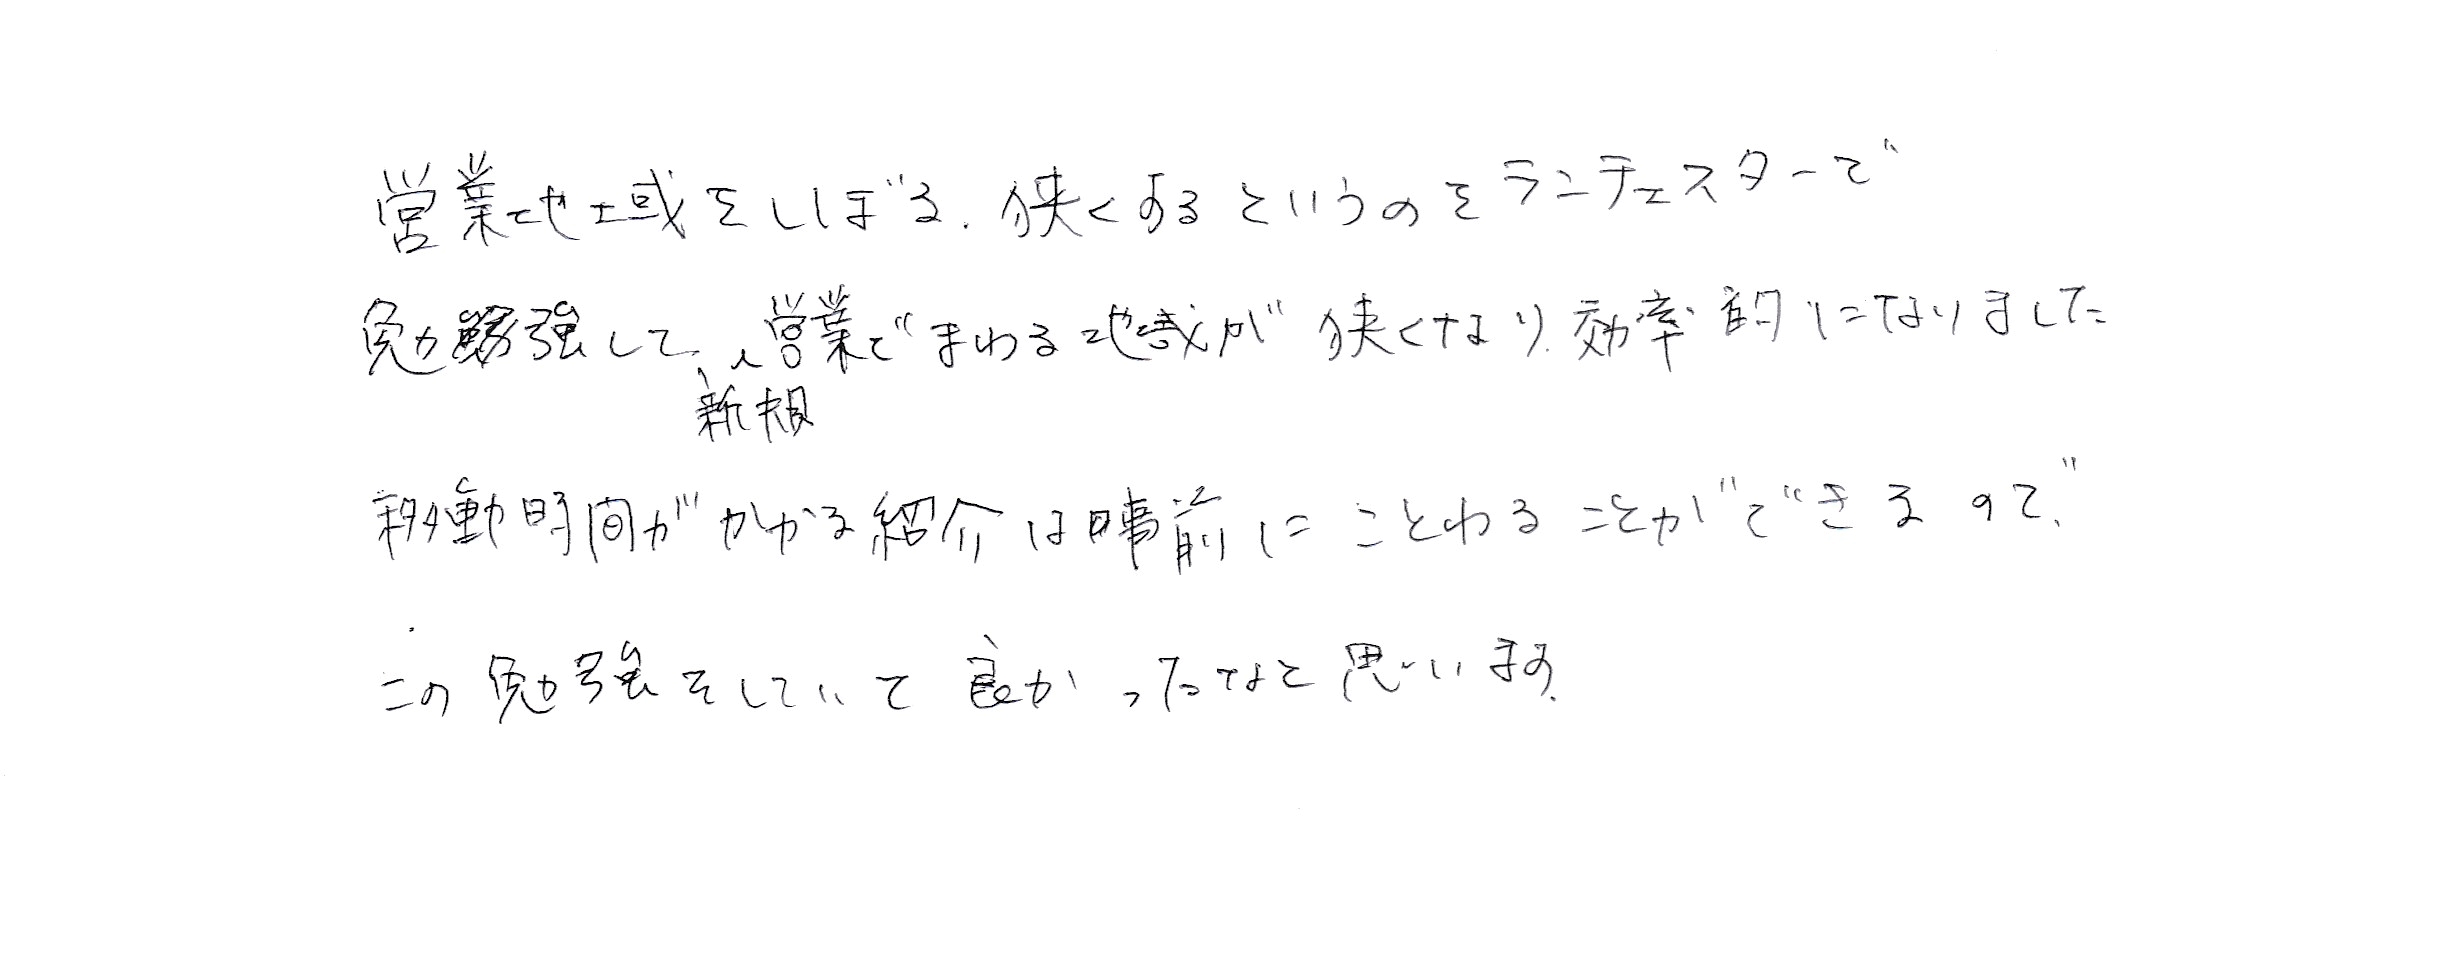 営業地域をしぼる、狭くするというのをランチェスターで
勉強して、新規営業でまわる地域が狭くなり、効率的になりました
移動時間がかかる紹介は事前にことわることができるので、
この勉強をしていて良かったなと思います。